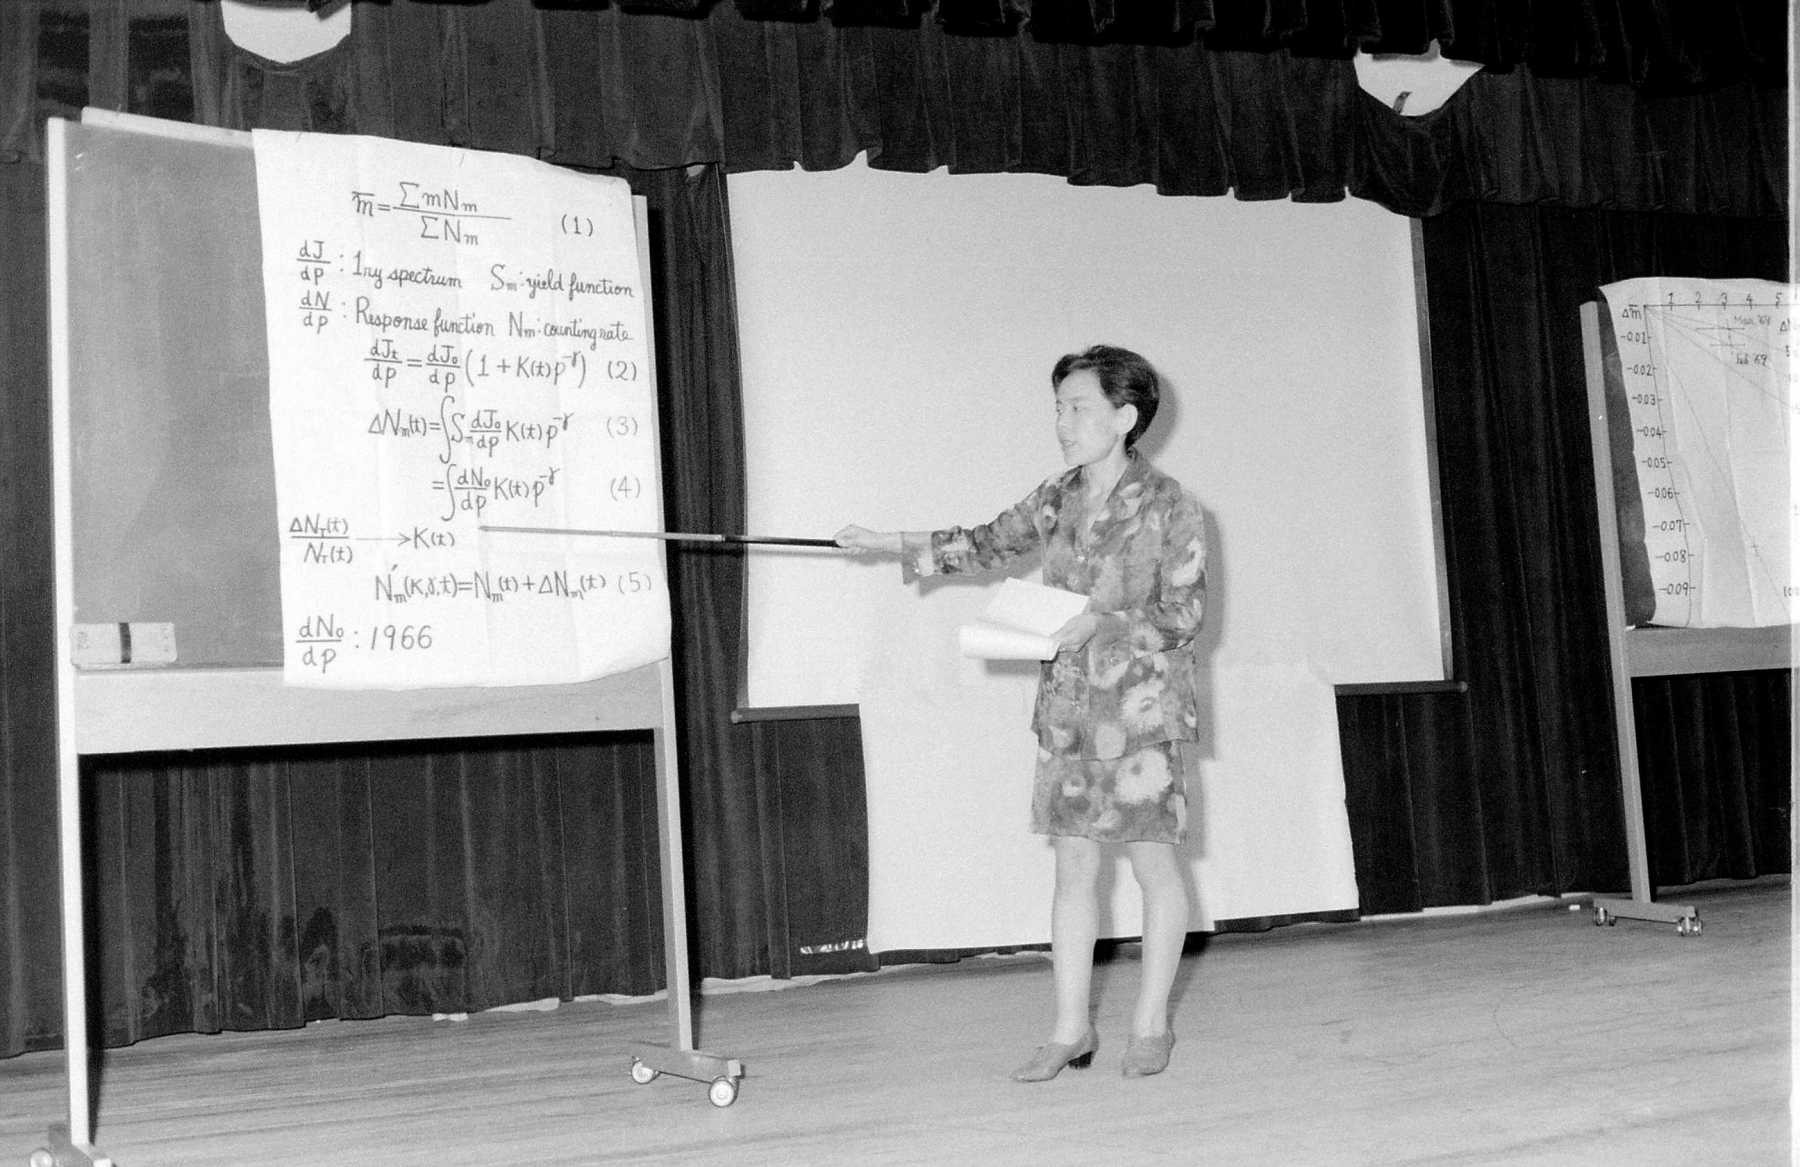 m̅ = ΣmNm / ΣNm (1)
dJ/dp : 1ry spectrum Sm: yield function
dN/dp : Response function Nm: counting rate
dJt/dp = dJ0/dp (1 + K(t)p^-γ) (2)
ΔNm(t) = ∫Sm dJ0/dp K(t)p^-γ (3)
= ∫dN0/dp K(t)p^-γ (4)
ΔNT(t)/NT(t) → K(t)
N'm(K,γ,t) = Nm(t) + ΔNm(t) (5)
dN0/dp : 1966
1 2 3 4 5
Δm̅
-0.01
-0.02
-0.03
-0.04
-0.05
-0.06
-0.07
-0.08
-0.09